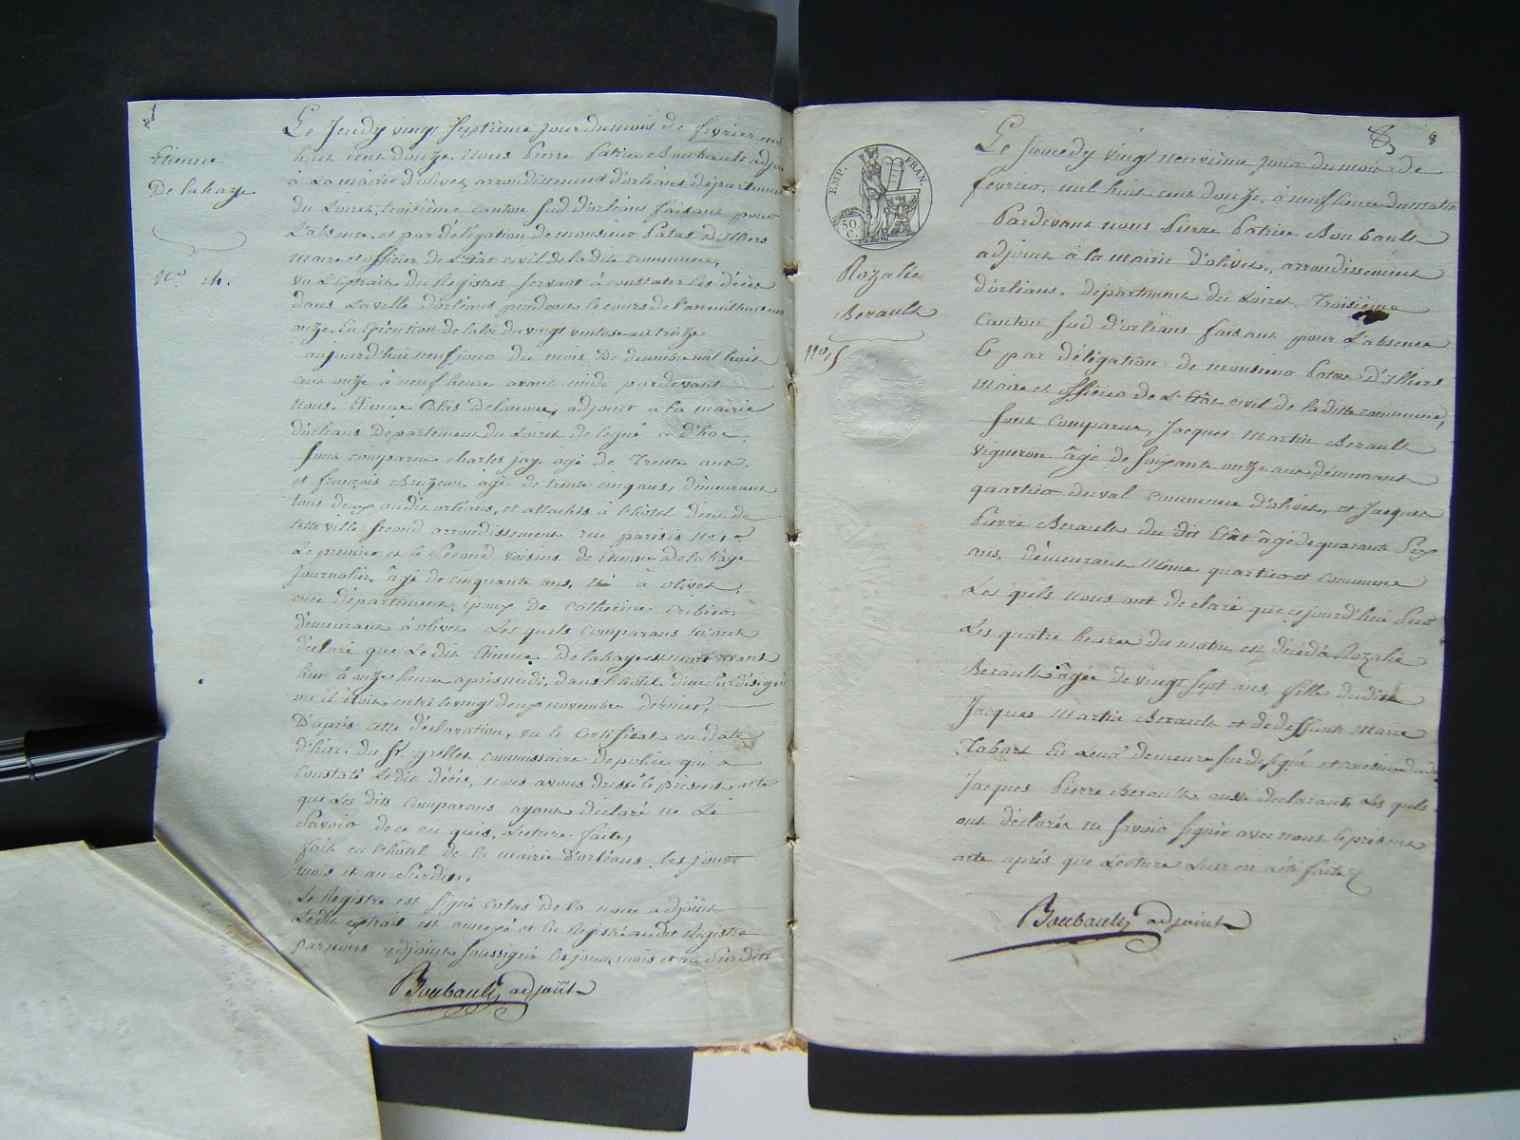 Etienne
De lahaye
N.o 14.
Le Jeudy vingt Septieme jour du mois de fevrier mil
huit cent douze. Nous Pierre Patrice Boubault adjoint
à La mairie d'olivet, arrondissement d'orléans, departement
du Loiret, troisième canton Sud d'orléans faisant pour
L'absence et par délégation de monsieur Patas d'Illiers
maire et officier de L'Etat civil de la dite commune,
vu L'Extrait du Registre servant à constater les décès
dans La ville d'orléans pendant le cours de l'an mil huit cent
onze. En Exécution de la loi du vingt ventose an treize
aujourd'hui neuf jour du mois de décembre mil huit
cent onze à neuf heure avant midi pardevant
nous. Etienne Colas delanoue, adjoint à la mairie
d'orléans département du Loiret délégué à d'hoc,
Sont comparus charles jay agé de Trente ans,
et françois Breyeur, agé de trente cinq ans, demeurant
tous deux audit orléans, et attachés à l'hôtel dieu de
cette ville Second arrondissement rue parisis no.
Le premier et le Second voisins de Etienne De la haye
journalier, âgé de cinquante ans, né à olivet,
mee département, Epoux de Catherine
demeurant à olivet. Les quels comparans m'ont
déclaré que Ledit Etienne Delahaye est mort avant
hier à onze heure après midi, dans l'hôtel dieu Susdésigné
ou il étoit entré le vingt deux novembre dernier,
D'après cette déclaration, vu le certificat en date
d'hier du Sr. grellet commissaire de police qui a
constaté Ledit décès, nous avons dressé le présent acte
que Les dits comparans ayant déclaré ne Le
Savoir de ce enquis, Lecture faite,
fait en l'hôtel de la mairie d'orléans. Les jour
mois et an Susdits,
Le Registre est signé Colas de la noue adjoint
Ledit extrait est annexé et Enregistré audit Registre
par nous adjoint Soussigné les jour, mois et an Susdits
Boubault, adjoint
8
EMP. FRAN.
50 C.
Rozalie
Berault
No. 15
Le Samedy vingt neuvieme jour du mois de
fevrier, mil huit cent douze, à neuf heure du matin
Pardevant nous Pierre Patrice Boubault
adjoint à la mairie d'olivet, arrondissement
d'orléans, département du Loiret, Troisième
Canton Sud d'orléans faisant pour L'absence
& par délégation de monsieur Patas d'Illiers
Maire et officier de L'Etat civil de la ditte commune,
Sont comparus, Jacques Martin Berault
Vigneron âgé de Soixante onze ans demeurant
quartier du val commune d'olivet, et Jacques
Pierre Berault du dit Etat âgé de quarante Six
ans, demeurant même quartier et commune
Les quels nous ont déclaré que cejourd'hui Sur
Les quatre heures du matin est décédé Rozalie
Berault âgée de vingt sept ans, fille dudit
Jacques Martin Berault et de deffunte Marie
Tabart En Leur demeure Susdésigné et voisin dudit
Jacques Pierre Berault aussi déclarant, Les quels
ont déclarés ne Savoir Signer avec nous le présent
acte après que Lecture Leur en a été faite
Boubault, adjoint